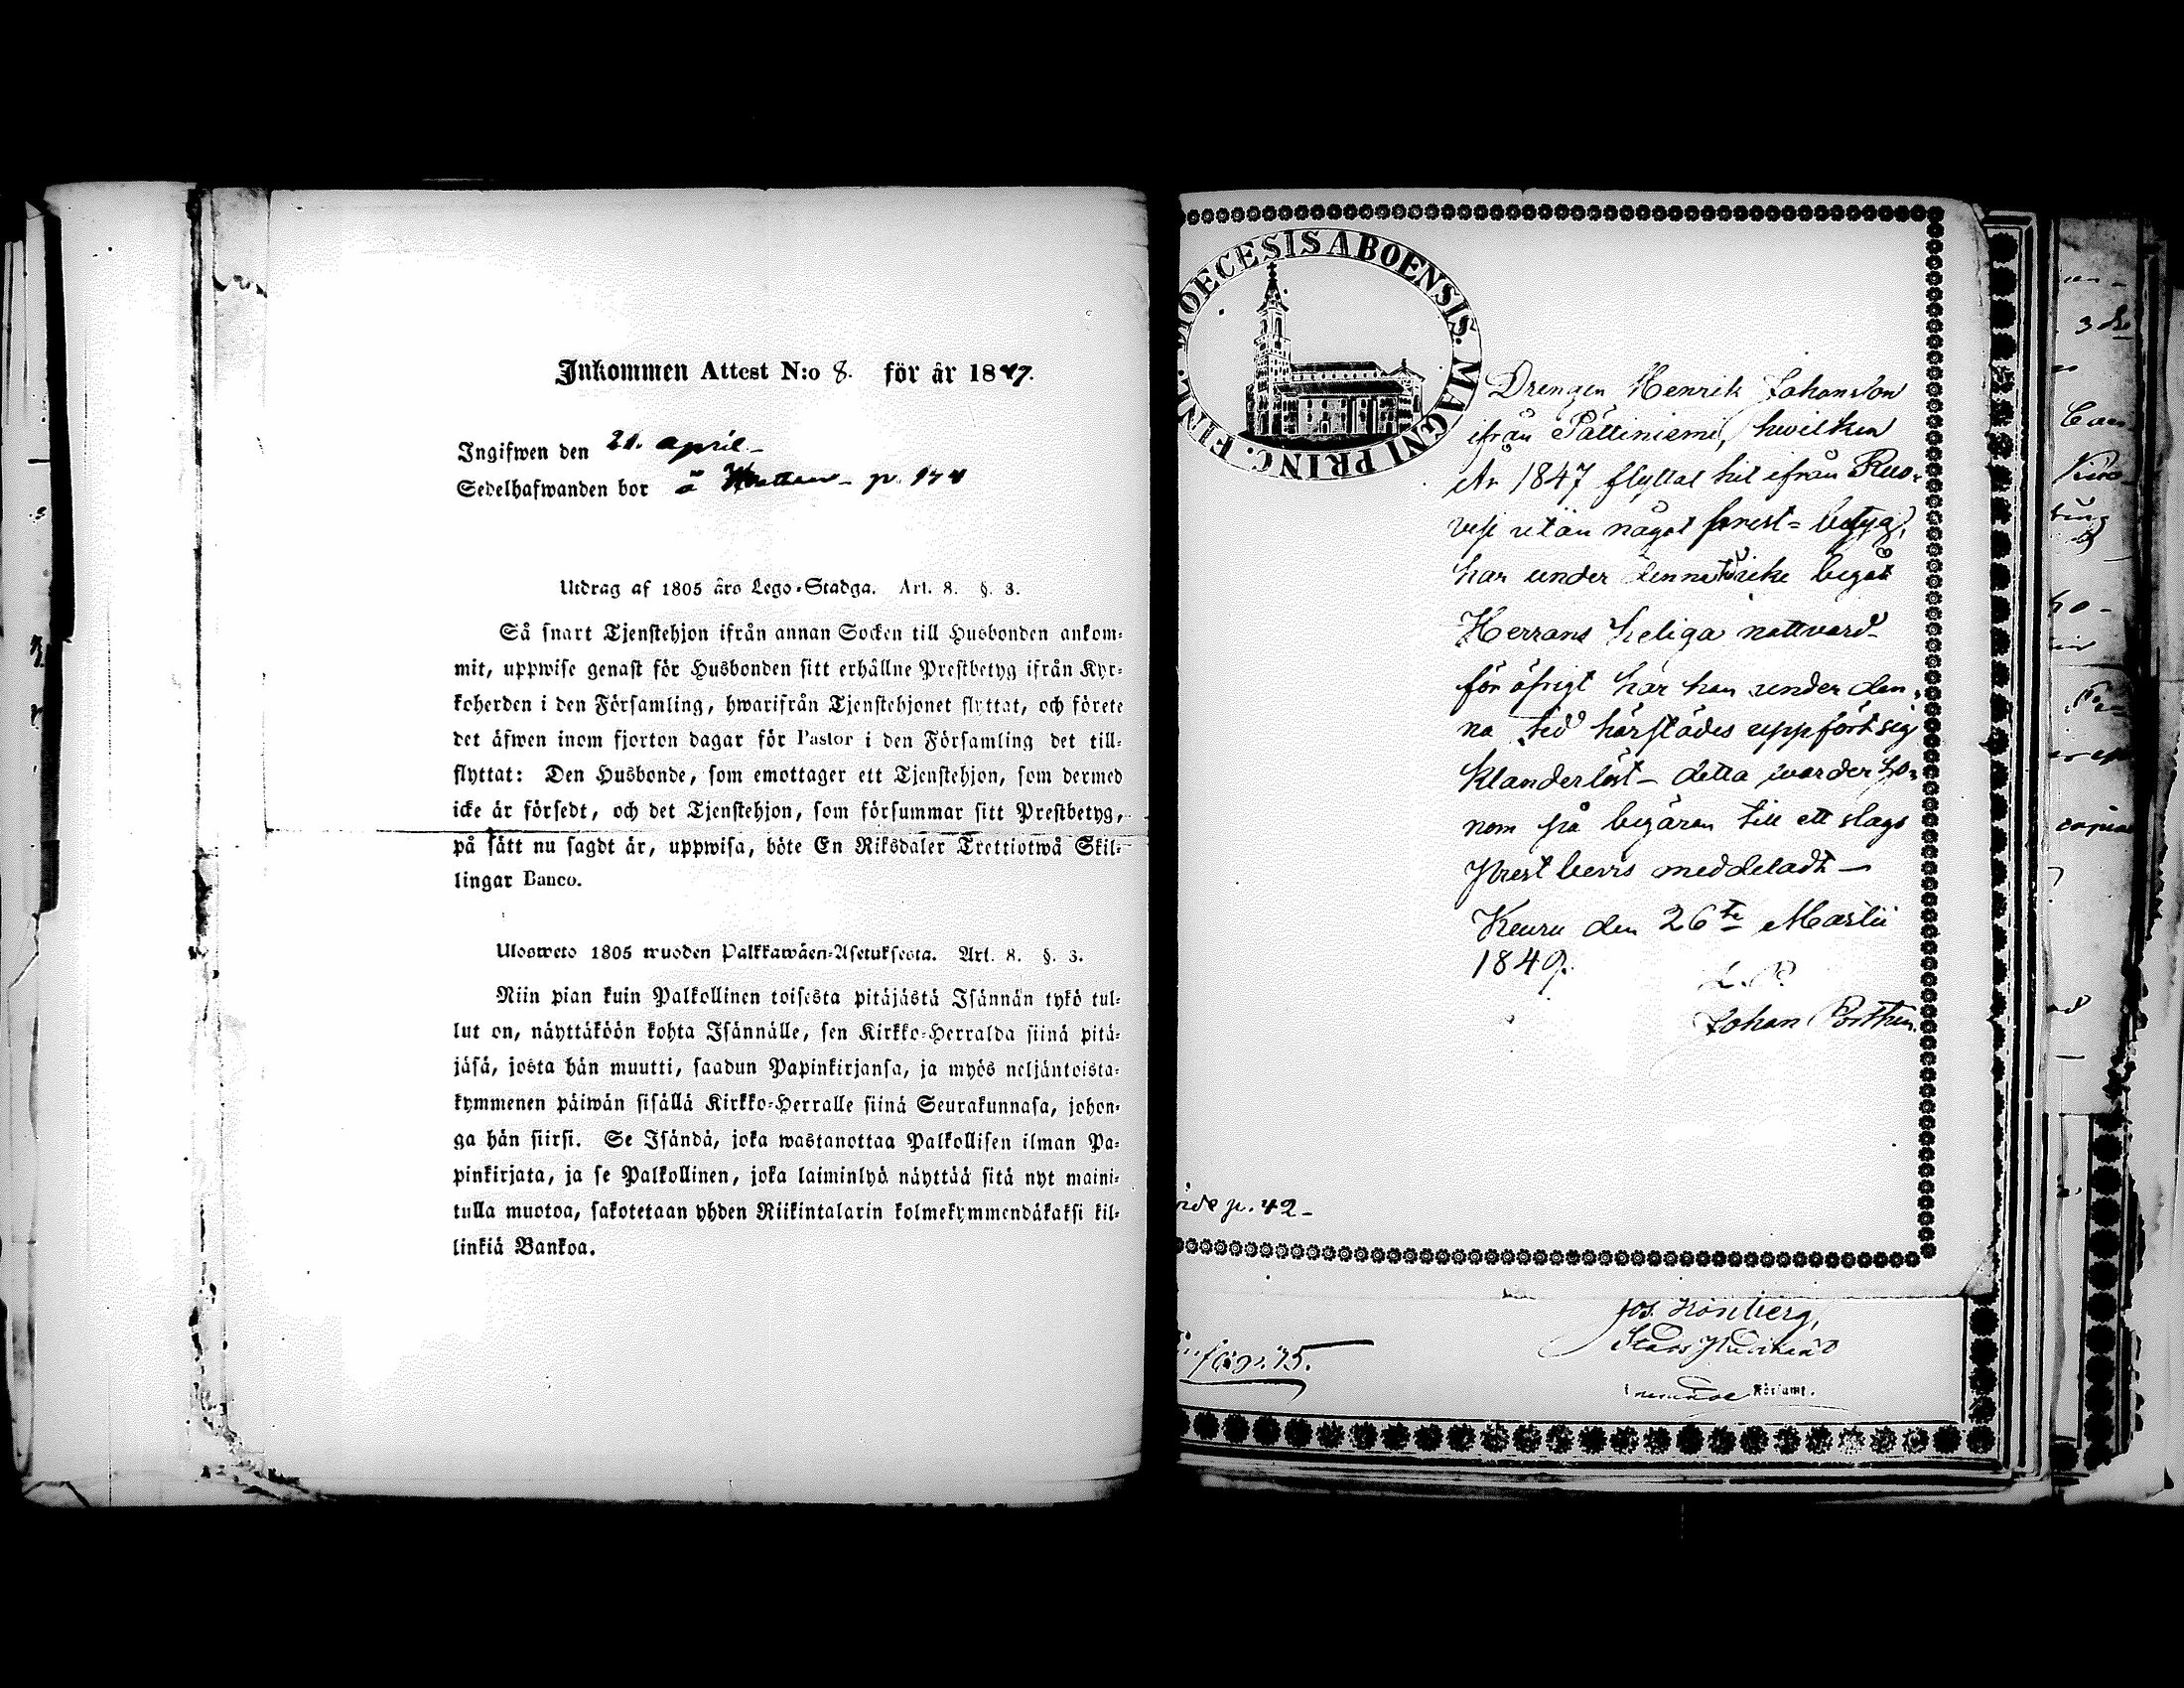 Inkommen Attest N:o 8. för år 1847.
Ingifwen den 21. april
Sedelhafwanden bor å p. 174
Utdrag af 1805 års Lego-Stadga. Art. 8. §. 3.
Så snart Tjenstehjon ifrån annan Socken till Husbonden ankom-
mit, uppwise genast för Husbonden sitt erhållne Prestbetyg ifrån Kyr-
koherden i den Församling, hwarifrån Tjenstehjonet flyttat, och förete
det äfwen inom fjorton dagar för Pastor i den Församling det till-
flyttat: Den Husbonde, som emottager ett Tjenstehjon, som dermed
icke är försedt, och det Tjenstehjon, som försummar sitt Prestbetyg,
på sätt nu sagdt är, uppwisa, böte En Riksdaler Trettiotwå Skil-
lingar Banco.
Ulosweto 1805 wuoden Palkkawäen-Asetuksesta. Art. 8. §. 3.
Niin pian kuin Palkollinen toisesta pitäjästä Isännän tykö tul-
lut on, näyttäköön kohta Isännälle, sen Kirkko-Herralda siinä pitä-
jäsä, josta hän muutti, saadun Papinkirjansa, ja myös neljäntoista-
kymmenen päiwän sisällä Kirkko-Herralle siinä Seurakunnasa, johon-
ga hän siirsi. Se Isändä, joka wastanottaa Palkollisen ilman Pa-
pinkirjata, ja se Palkollinen, joka laiminlyö näyttää sitä nyt maini-
tulla muotoa, sakotetaan yhden Riikintalarin kolmekymmendäkaksi kil-
linkiä Bankoa.
DIOECESIS ABOENSIS. MAGNI PRINC. FINL.
Drengen Henrik Johansson
ifrån Pättiniemi, hwilken
År 1847 flyttat hit ifrån Ruo-
vesi utan något prest= betyg,
har under denna tid icke begåt
Herrans heliga nattvard
för öfrigt har han under den-
na tid härstädes uppfört sig
klanderlöst – detta warder ho-
nom på begäran till ett slags
Prest bevis meddeladt –
Keuru den 26te Martii
1849.
L. S.
Johan Porthen
p. 42 –
Jos. Hönberg,
pag. 75.
Församl.